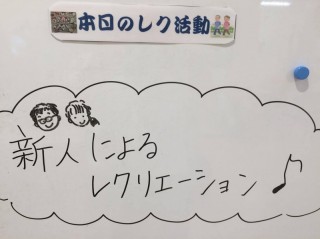 本日のレク活動
新人による
レクリエーション♪